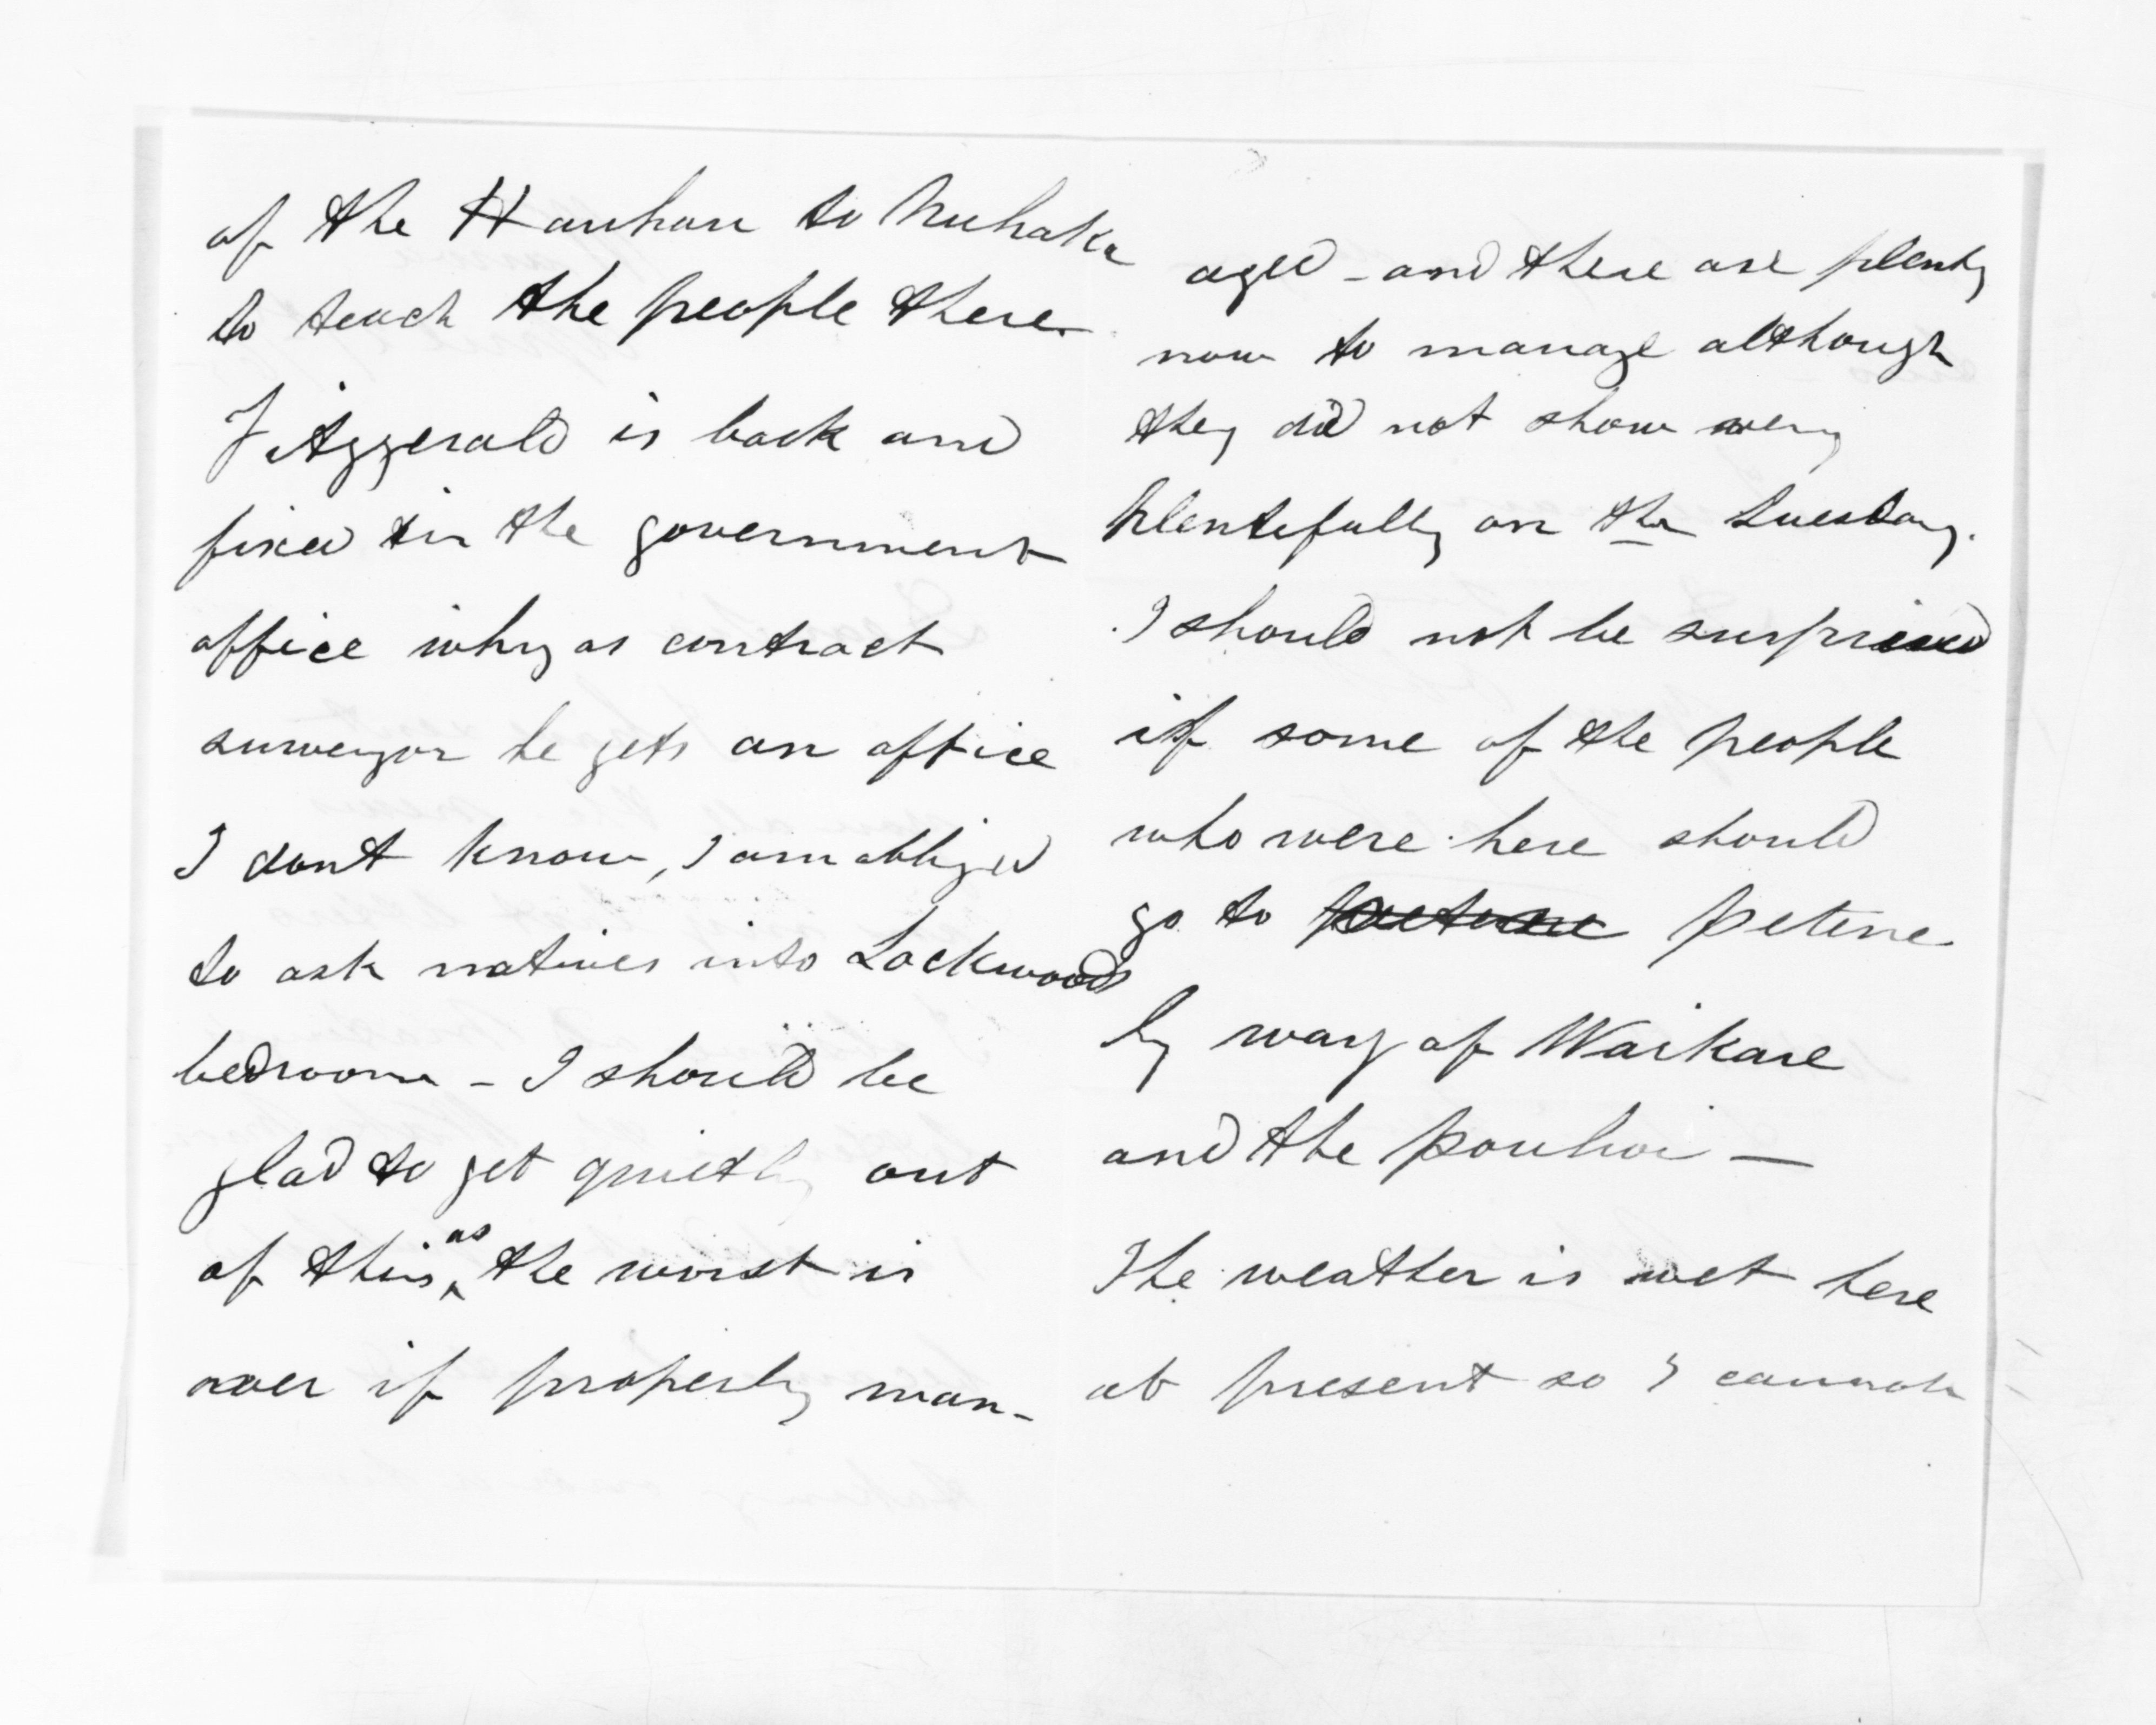 of the Hauhau to Nuhaka
to teach the people there.
Fitzgerald is back and
fixed in the government
office why as contract
surveyor he gets an office
I dont know, I am obliged
to ask natives into Lockwoods
bedroom - I should be
glad to get quietly out
of this, as the worst is
over if properly man-
aged - and there are plenty
now to manage although
they did not show very
plentifully on the Tuesday.
I should not be surprised
if some of the people
who were here should
go to petene
by way of Waikare
and the pouhoi —
The weather is wet here
at present so I cannot